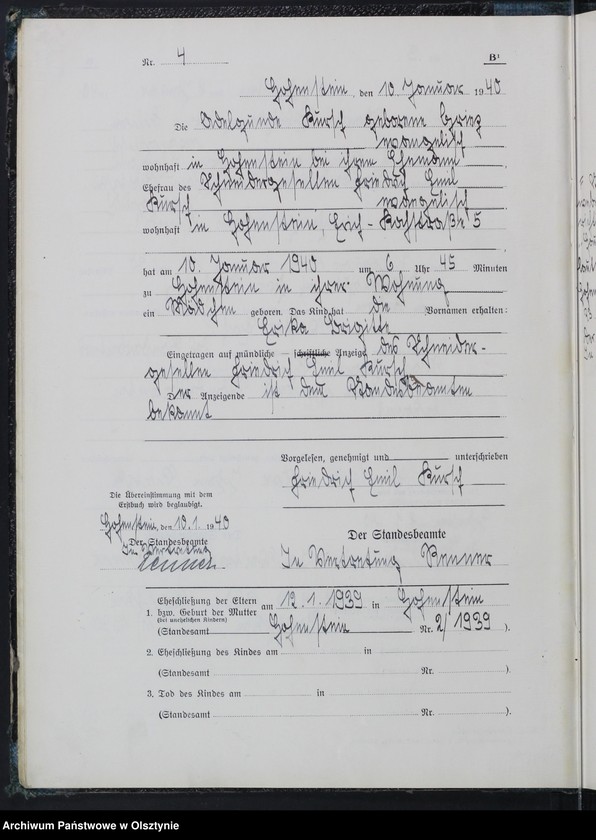 Nr. 4 B¹
Hohenstein, den 10. Januar 1940
Die Adelgunde Kursch geborene
evangelisch
wohnhaft in Hohenstein bei ihrem Ehemann
Ehefrau des Schneidergesellen Friedrich Emil
Kursch evangelisch
wohnhaft in Hohenstein, Erich-Kochstraße 5
hat am 10. Januar 1940 um 6 Uhr 45 Minuten
zu Hohenstein in ihrer Wohnung
ein Mädchen geboren. Das Kind hat die Vornamen erhalten:
Erika Brigitte
Eingetragen auf mündliche – schriftliche Anzeige des Schneider-
gesellen Friedrich Emil Kursch
Der Anzeigende ist dem Standesbeamten
bekannt
Vorgelesen, genehmigt und unterschrieben
Friedrich Emil Kursch
Die Übereinstimmung mit dem
Erstbuch wird beglaubigt.
Hohenstein, den 10.1. 1940
Der Standesbeamte
In Vertretung
Renner
Der Standesbeamte
In Vertretung Renner
Eheschließung der Eltern am 12.1.1939 in Hohenstein
1. bzw. Geburt der Mutter
(bei unehelichen Kindern)
(Standesamt Hohenstein Nr. 2/1939 ).
2. Eheschließung des Kindes am in
(Standesamt Nr. ).
3. Tod des Kindes am in
(Standesamt Nr. ).
Archiwum Państwowe w Olsztynie